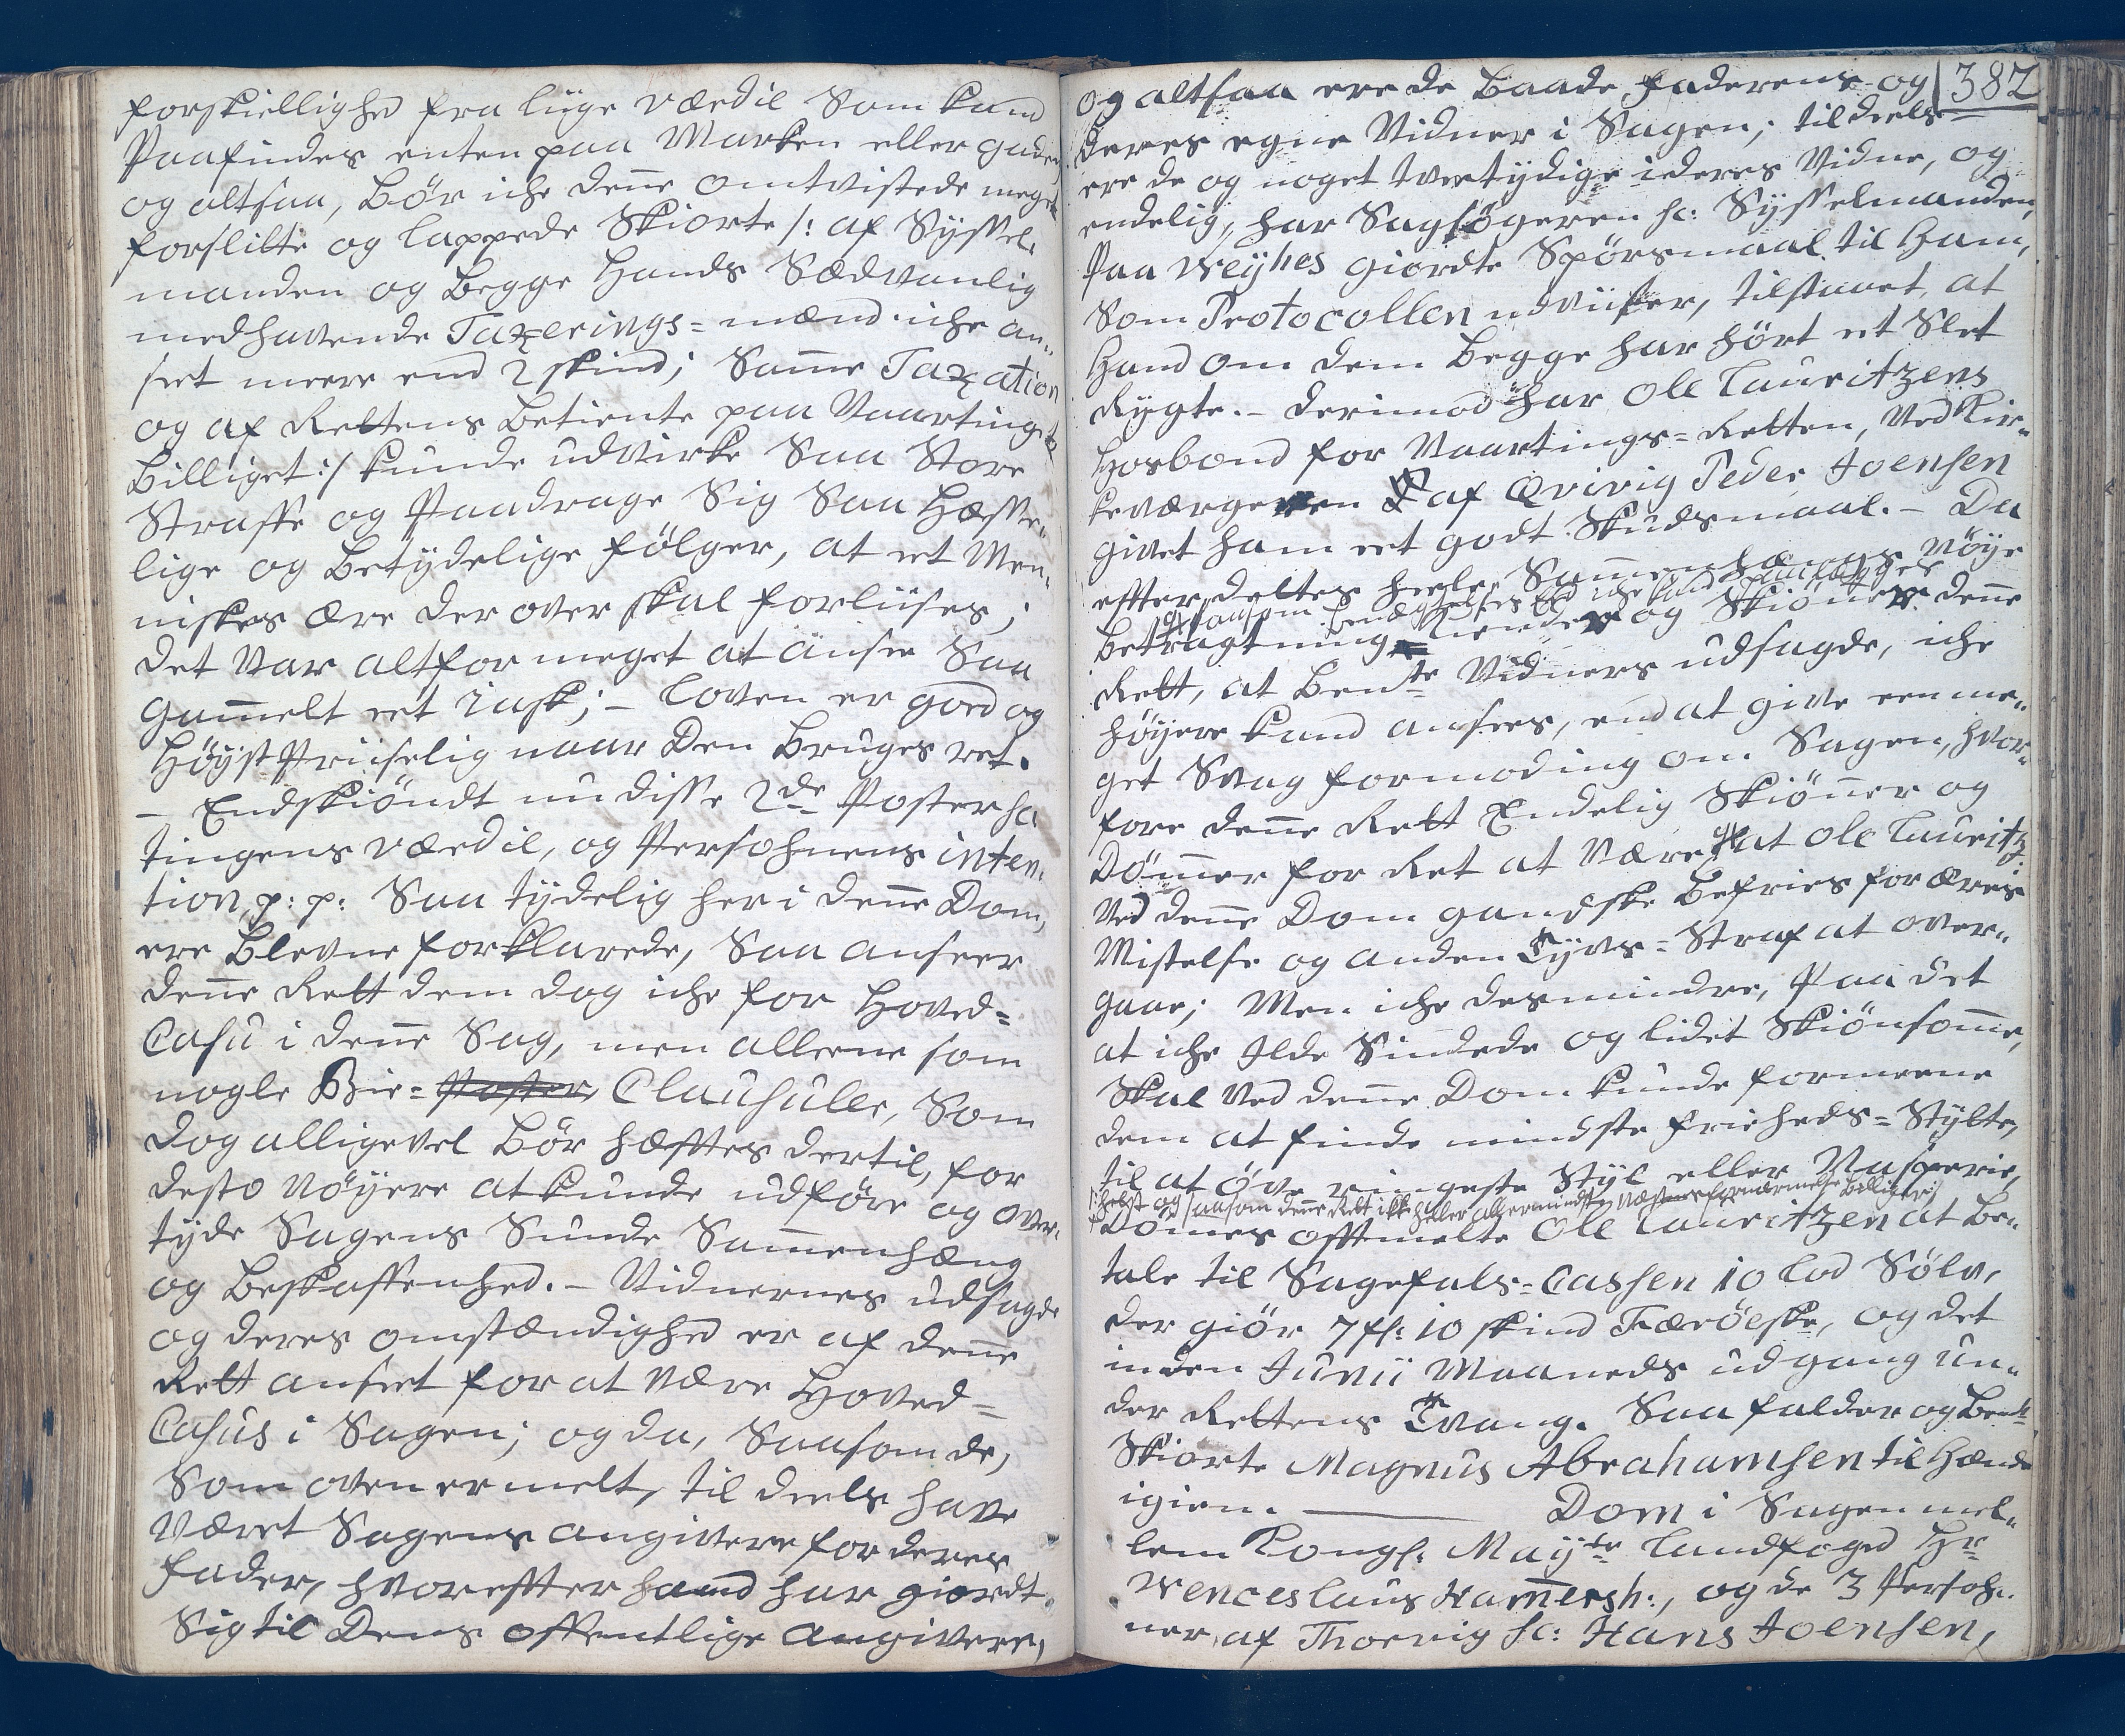 forskiellighed fra liige værdie som kand
Paafindes enten paa Marken eller gaden
og altsaa, bör iche denne omtvistede meget
forslitte og lappede Skiorte /: af Syssel-
manden og begge hands Sædvanlig
medhavende Taxerings-mænd iche an-
seet meere end 2 skind; Samme Taxation
og af Rettens betiente paa Vaartinget
billiget :/ kunde udvirke Saa Store
Straffe og Paadrage Sig Saa hæsse-
lige og betydelige følger, at et Men-
niskes ære derover skal forliises;
det var altfor meget at ansee Saa
gammelt et Task; - Loven er goed og
høyst Priiselig naar den bruges ret.
- Endskiöndt nu disse 2de Poster sc:
tingens værdie, og Persohnens inten-
tion p: p: Saa tydelig her i denne Dom,
ere blevne forklarede, Saa anseer
denne Rett dem dog iche for Hoved-
Casu i denne Sag, men alleene som
nogle Bie-Poster, Clausuller, Som
dog alligevel bör hæfftes dertil, for
desto nöyere at kunde udføre og over-
tyde Sagens Sunde Sammenhæng
og beskaffenhed. - Vidnernes udsagde
og deres omstændighed er af denne
Rett anseet for at være Hoved-
Casus i Sagen; og da, Saasom de,
Som oven ermelt, til deels have
været Sagens angivere for deres
fader, hvoreffter hand har giordt
Sig til Dens offentlige angivere,
382
og altsaa ere de baade faderens og
deres egne Vidner i Sagen; til deels
ere de og noget tvertydige i deres Vidne, og
endelig, har Sagsögeren sc: Sysselmanden,
Paa Weyhes giordte Spörsmaal til ham,
Som Protocollen udviiser, tilstaaet, at
hand om dem begge har hört et Slet
Rygte. - derimod har Ole Lauritzens
Hosbond for Vaartings-Retten, ved Kir-
keværgeren af Qvivig Peder Joensen
givet ham et godt Skudsmaal. - Da
effter dettes heele Sammenhængs nöye
saasom benægtelses Eed iche kand paalægges
betragtning kiender og Skiönner denne
Rett, at bemte Vidners udsagde, iche
höyere kand ansees, end at give een me-
get Svag formoding om Sagen, hvor-
fore denne Rett Endelig Skiönner og
Dömmer for Ret at være, at Ole Lauritz:
ved denne Dom gandske befries for æres
Mistelse og anden Tyvs-Straf at over-
gaae; Men iche desmindre, Paa det
at iche Ilde Sindede og lidet Skiönsomme,
Skal ved denne Dom kunde formeene
dem at finde mindste friheds-Stytte,
til at öve ringeste Styl eller Rasperie,
/: helst og saasom denne Rett ikke heller allermindste Næstens fornærmelse billiger :/
Dömes offtmelte Ole Lauritzen at be-
tale til Sagefals-Cassen 10 Lod Sölv,
der giör 7 fl: 10 skind Færöeske, og det
inden Junii Maaneds udgang un-
der Rettens Tvang. Saa falder og bemte
Skiorte Magnus Abrahamsen til hænde
igien. ——— Dom i Sagen mel-
lem Kongl: Mayts Landfoged Hr
Wenceslaus Hamersh:, og de 3 Persoh-
ner, af Thorvig sc: Hans Joensen,